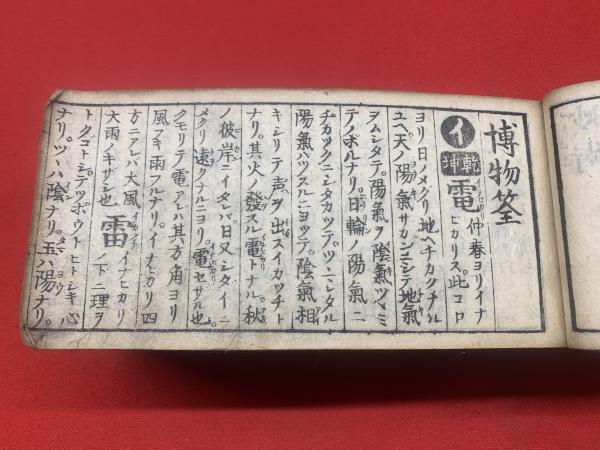 博物筌
イ 乾坤 電 イナビカリ 仲春ヨリイナビカリス。此コロ
ヨリ日ノメグリ地ヘチカクナル
ユヘ天ノ陽氣サカンニシテ地氣
ヲムシタテ。陽氣ヲ陰氣ツヽミ
テノボルナリ。日輪ノ陽氣ニ
チカックニシタカッテ。ツヽミタル
陽氣ハツスルニヨッテ。陰氣相
キシリテ声ヲ出スイカッチト
ナリ。其火ノ發スル電トナル。秋
ノ彼岸ニイタレバ日又シタイニ
メクリ遠クナルニヨリ。電セサル也
クモリテ電アレハ其方角ヨリ
風フキ雨フルナリ。イナヒカリ四
方ニアレハ大風
大雨ノキザシ也 雷 イナヒカリノ下ニ理ヲ
トク。コトシテツポウトヒトシキ心
ナリ。ツヽハ陰ナリ。玉ハ陽ナリ。